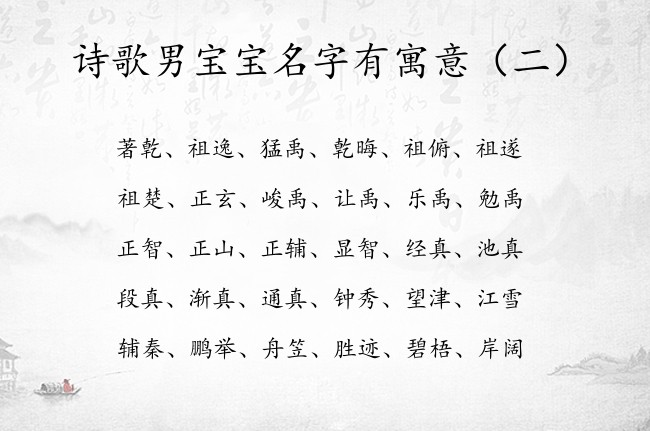 诗歌男宝宝名字有寓意（二）
著乾、祖逸、猛禹、乾晦、祖俯、祖遂
祖楚、正玄、峻禹、让禹、乐禹、勉禹
正智、正山、正辅、显智、经真、池真
段真、渐真、通真、钟秀、望津、江雪
辅秦、鹏举、舟笠、胜迹、碧梧、岸阔